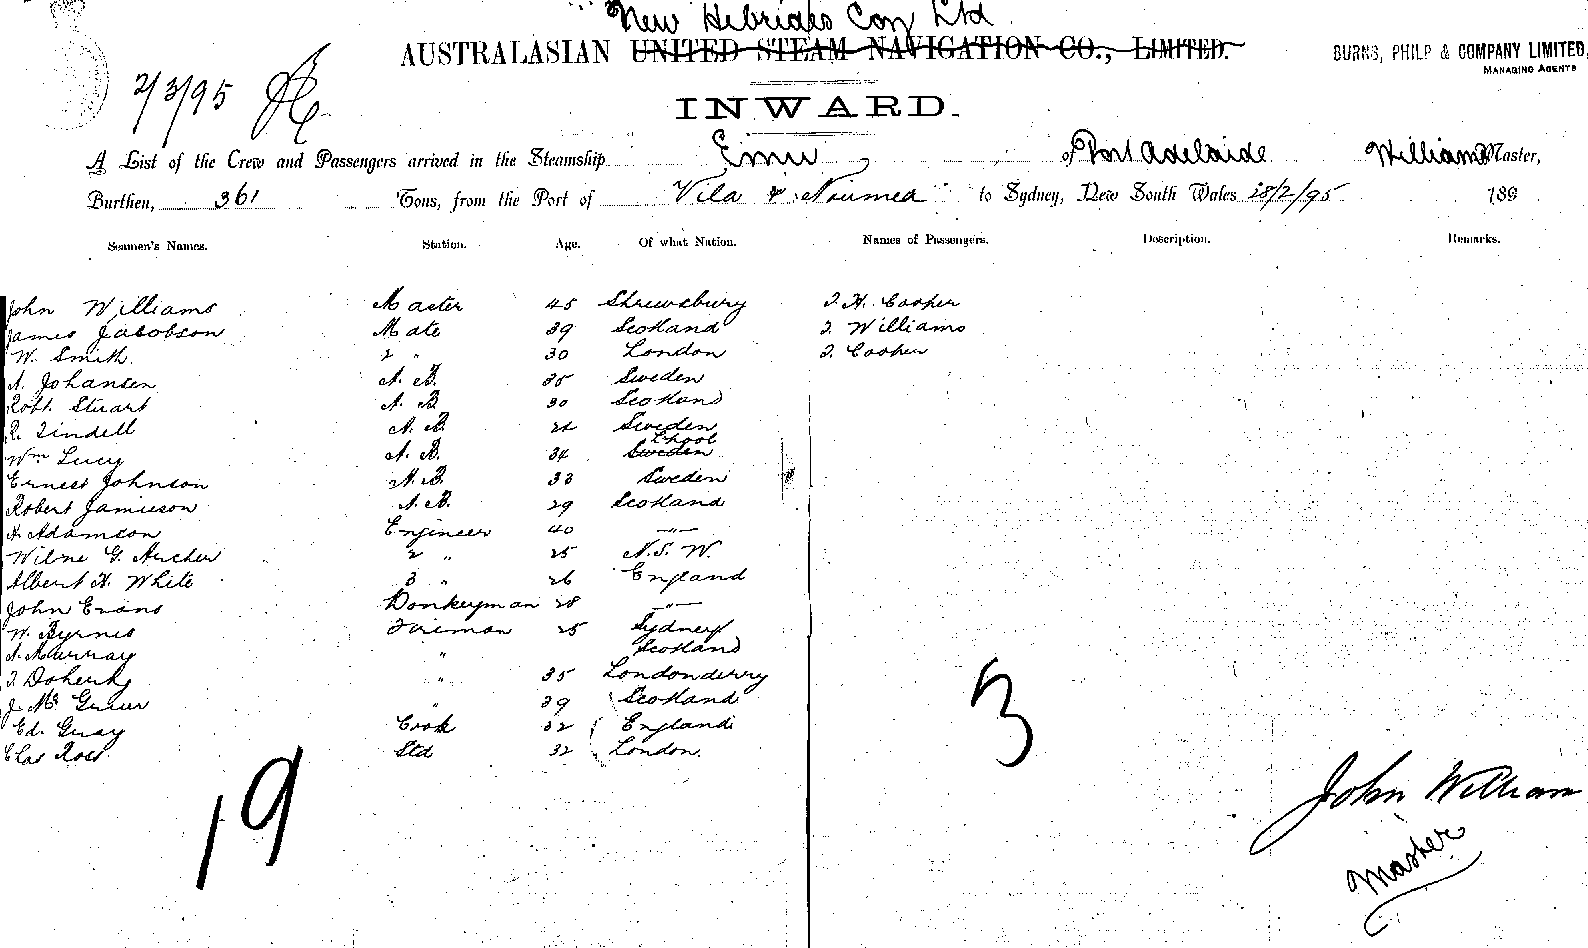 New Hebrides Coy Ltd
AUSTRALASIAN UNITED STEAM NAVIGATION CO., LIMITED.
BURNS, PHILP & COMPANY LIMITED,
MANAGING AGENTS
2/3/95
INWARD.
A List of the Crew and Passengers arrived in the Steamship Emu of Port Adelaide Williams Master,
Burthen, 361 Tons, from the Port of Vila & Noumea to Sydney, New South Wales 28/2/95 189
Seamen's Names. Station. Age. Of what Nation. Names of Passengers. Description. Remarks.
John Williams Master 45 Shrewsbury J. H. Cooper
James Jacobson Mate 39 Scotland J. Williams
W. Smith 2 " 30 London J. Cooper
A. Johansen A. B. 35 Sweden
Robt. Stuart A. B. 30 Scotland
R. Lindell A. B. Sweden
Wm Lucy A. B. 34 Sweden L'pool
Ernest Johnson A. B. 33 Sweden
Robert Jamieson A. B. 29 Scotland
A. Adamson Engineer 40 — " —
G. Archer 2 " 25 N. S. W.
Albert H. White 3 " 26 England
John Evans Donkeyman 28 — " —
W. Byrnes Fireman 25 Sydney
A. Murray " Scotland
J. Doherty " 35 Londonderry
J. Mc " 39 Scotland
Ed. Gray Cook 32 England
Chas Ross Std 32 London.
19
3
John William
Master